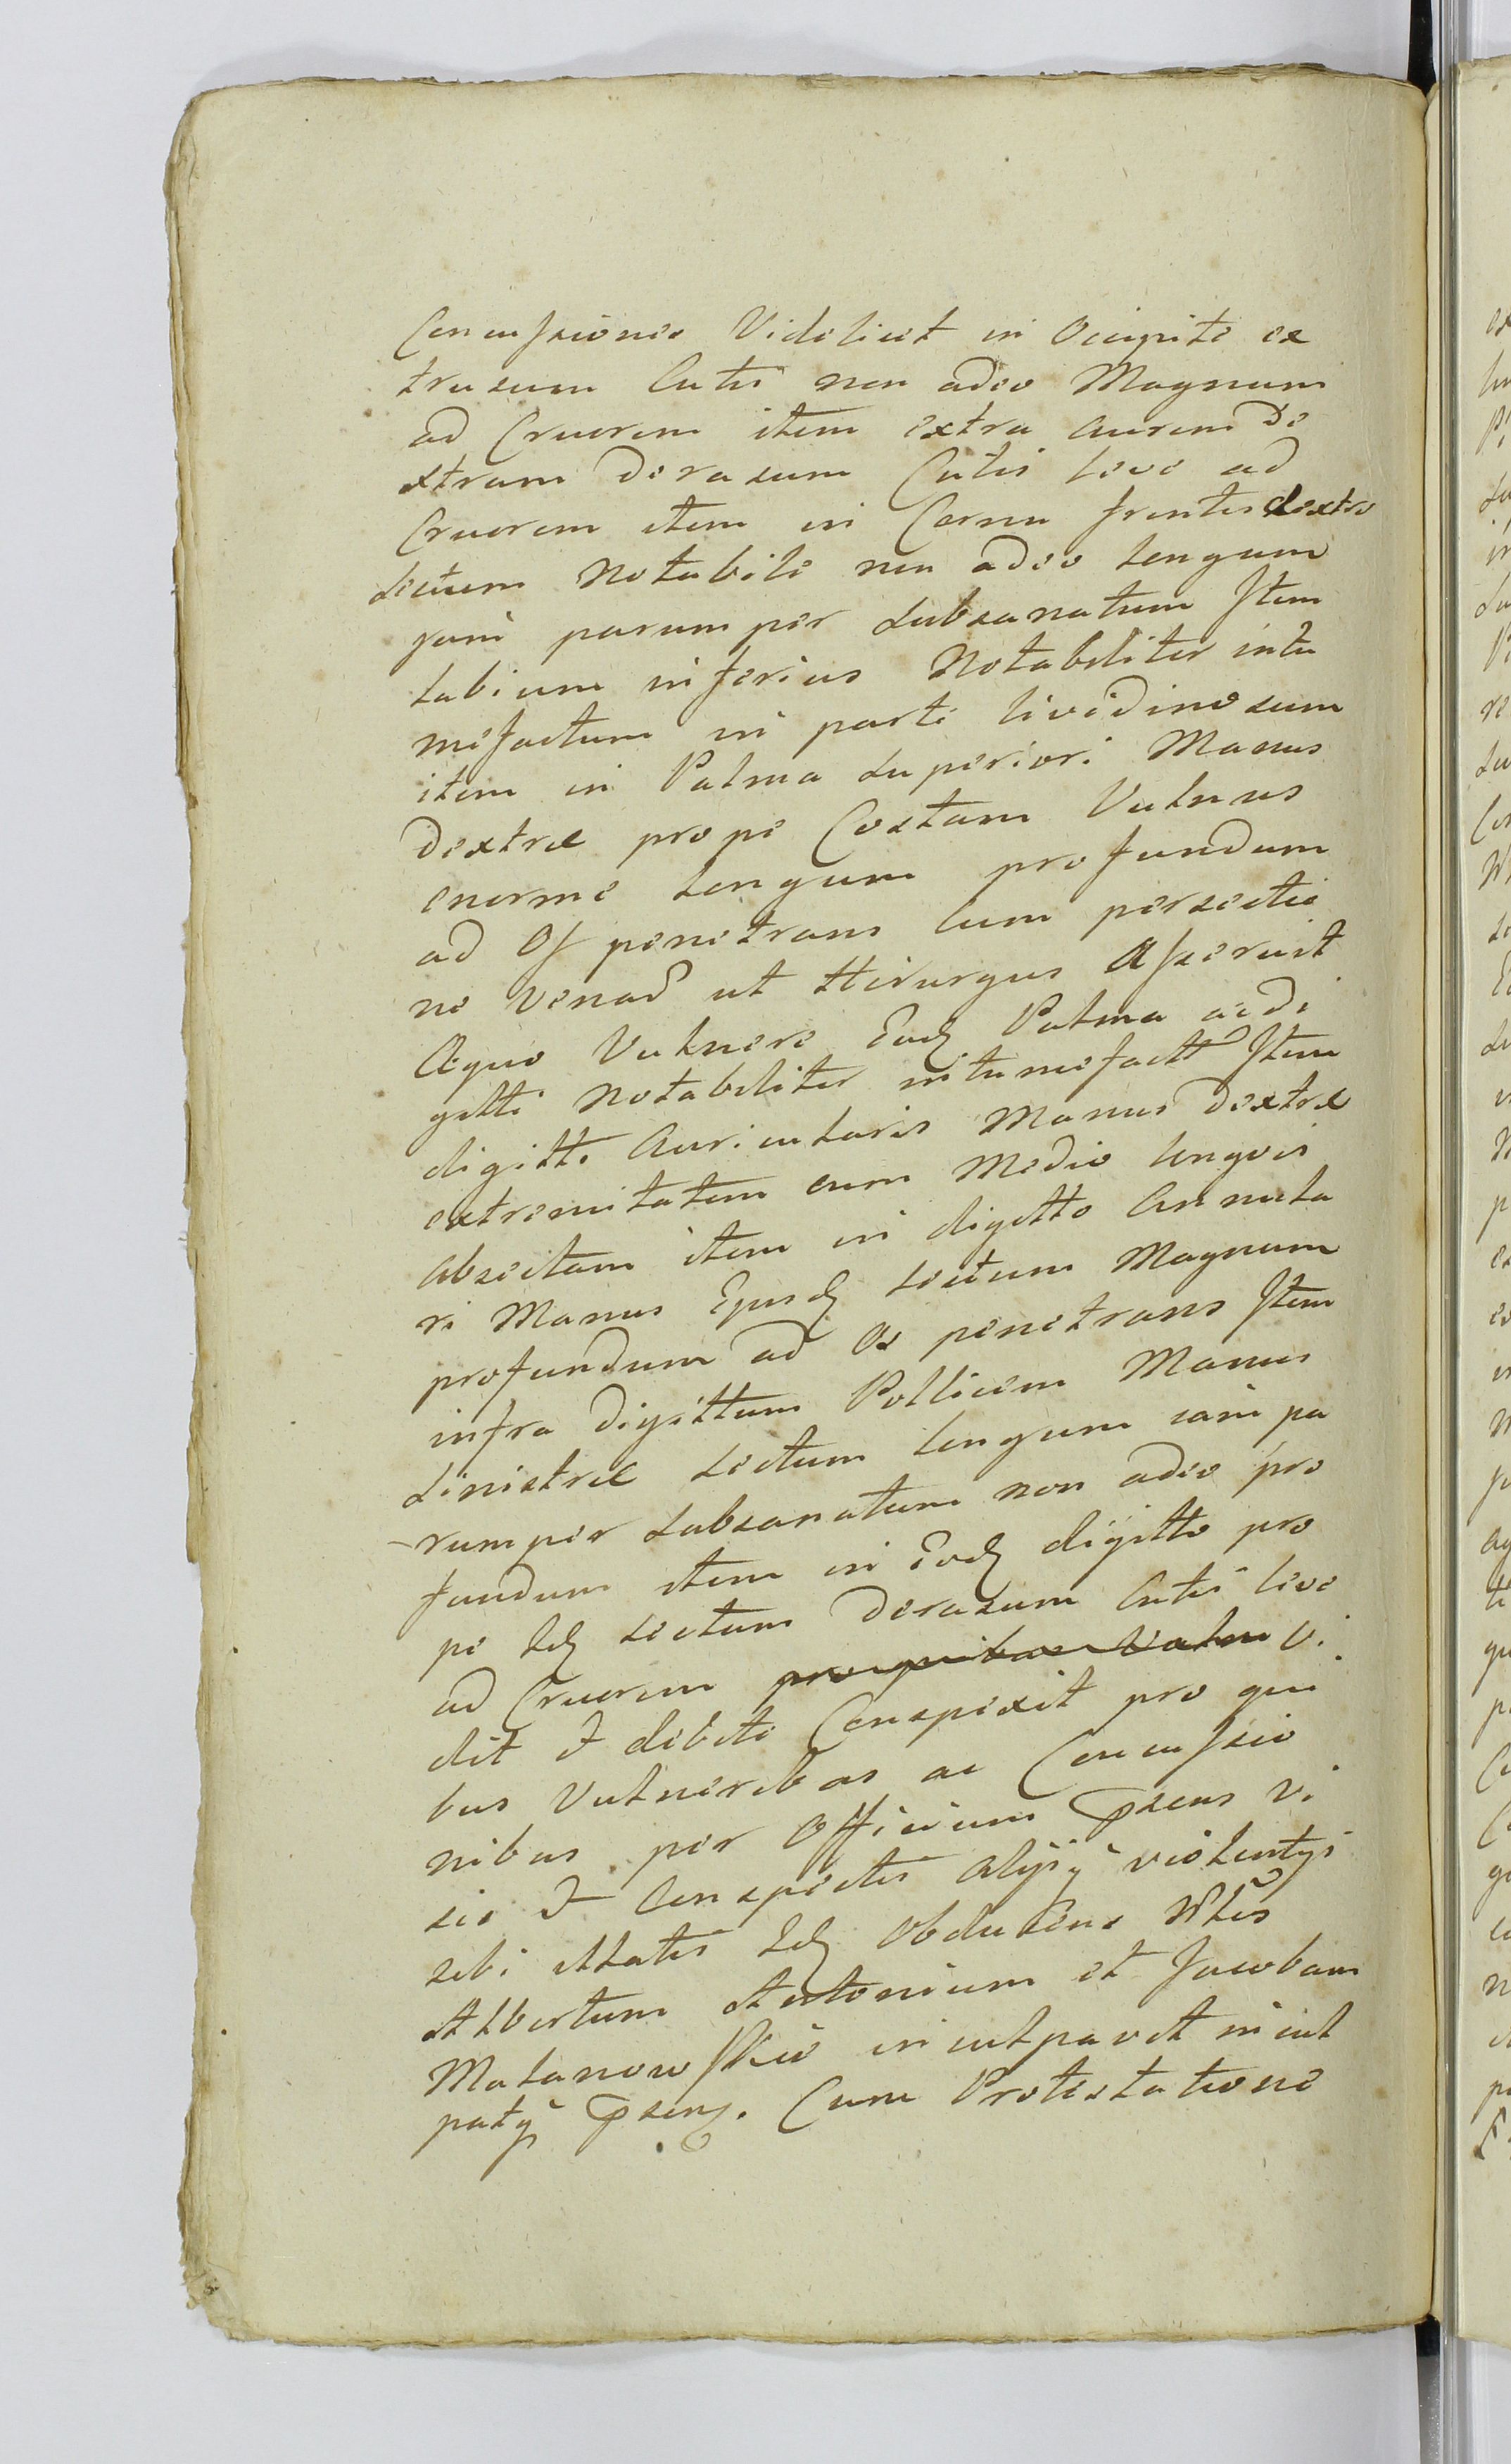 Concussiones Videlicet in Occipite ex
trusum Cutis non adeo Magnum
ad Cruorem item extra aurem De
xtram Derasum Cutis leve ad
Cruorem item in Cornu frontis dextro
sectum Notabile non adeo longum
jam parumper subsanatum Item
labium inferius Notabiliter intu
mefactum in parte lividinosum
item in Palma superiori Manus
Dextræ prope Costam Vulnus
enorme longum profundum
ad Os penetrans cum persectio
ne venar ut Hirurgus Asseruit
A quo Vulnere Eadq Palma ac di
gitti Notabiliter intumefacti Item
digitti Auricularis Manus Dextræ
extremitatem cum Medio Ungvis
absectam item in digitto Annula
ri Manus Ejusdq sectum Magnum
profundum ad Os penetrans Item
infra Digittum Pollicem Manus
sinistræ sectum longum iam pa
rumper subsanatum non adeo pro
fundum item in Eodq digitto pro
pe sectum Derasum Cutis leve
ad Cruorem pro quibus Vulne vi
dit & debite Conspexit pro qui
bus Vulneribus ac Concussio
nibus per Officium pñs vi
sis & Conspectis alysq violentys
sibi illatis obducens
Albertum Antonium et Jacobum
Malanowskie inculpavit incul
patq. Cum Protestatione